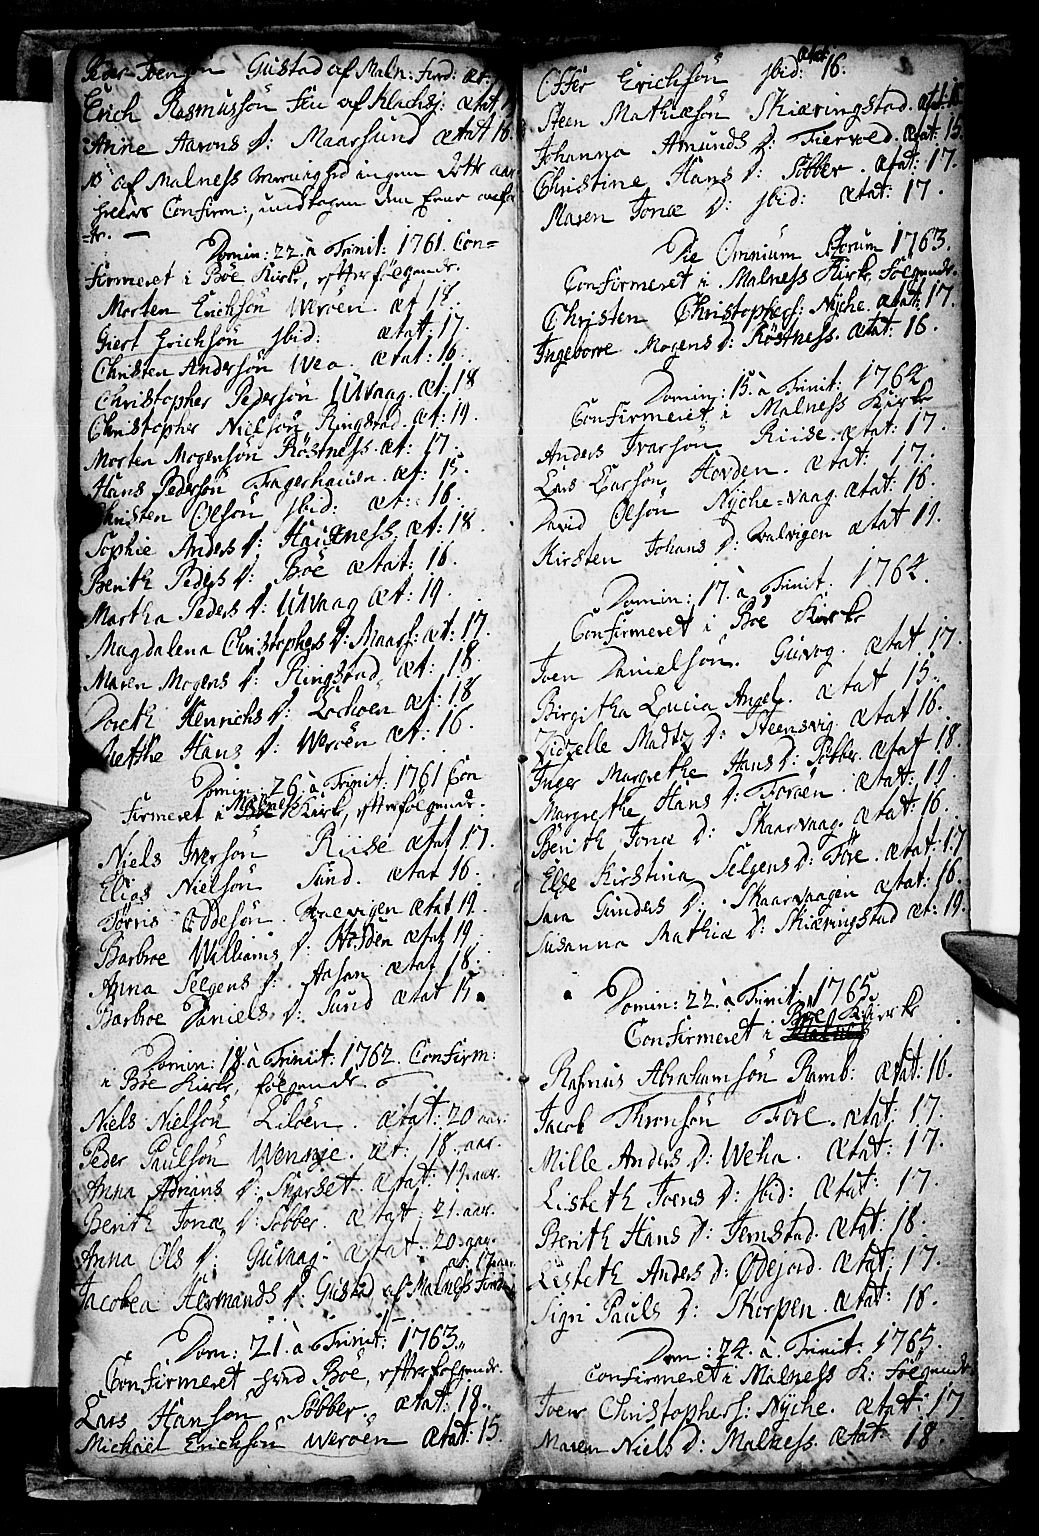 Peder Joensen Gustad af Maln: Fierd: æt:
Erich Rasmussön af Klachsj: ætat
Anne Aarons D: Maarsund ætat 16.
af Malness
Confirm:, undtagen den Eene
Domin: 22. à Trinit: 1761. Con=
firmeret i Böe Kirke, efterfölgende.
Morten Erichsön Weröen. æt 18.
Giert Erichsön jbid: ætat: 17.
Christen Andersön Wea. ætat: 16.
Christopher Pedersön Utvaag. æt: 18
Christopher Nielsön Ringstad. æt: 19.
Morten Mogensön Röstness. æt: 17.
Hans Pedersön Fagerhauen. æt: 15.
Christen Olsön jbid: æt: 16.
Sophie Anders D: æt: 18.
Berith Peders D: Böe ætat: 16.
Martha Peders D: Utvaag æt: 19.
Magdalena Christophers D: Maars: æt: 17.
Maren Mogens D: Ringstad. æt: 18.
Doreth Henrichs D: æt: 18
Hans D: Weröen æt: 16.
Domin: 26. à Trinit: 1761 Con
firmeret i Malness Kirk, efterfölgende.
Niels Iversön Riise ætat 17.
Elias Nielsön Sund. ætat 16.
Torris Oddesön ætat 19.
Barbroe Williams D: Hofden ætat 19.
Anna Selgens D: Aasan. ætat 18.
Barbroe Daniels D: Sund ætat 15.
Domin: 18. à Trinit: 1762. Confirm:
i Böe Kirke, fölgende
Niels Nielsön Lilöen. ætat: 20 aar.
Peder Paulsön Wennje. æt: 18. aar.
Anna Adrians D: Skarset. ætat: 19. aar.
Berith Jonæ D: Söbber. ætat: 21. aar.
Anna Ols D: Guvaag. ætat: 20. aar.
æt: 17 aar.
Jacobea Hermands D: Gustad af Malness Fierd:
Dom: 21. à Trinit: 1763.
Confirmeret ved Böe, efterfölgende.
Lars Hanson Söbber. ætat: 18.
Michael Erichsön Weröen ætat: 15.
ætat:
Offer Erichsön jbid: 16.
Steen Mathiæsön Skiæringstad. ætat: 18.
Johanna Amunds D: Fiervold. ætat: 15.
Christine Hans D: Söbber. ætat: 17.
Maren Jonæ D: jbid: ætat: 17.
Die Omnium Storum 1763.
Confirmeret i Malness Kirk, Fölgende.
Christen Christophers: Nyche. ætat: 17.
Ingeborre Mogens D: Röstness. ætat: 16.
Domin: 15. à Trinit: 1764.
Confirmeret i Malness Kirke
Anders Ivarsön Riise. ætat: 17.
Lars Larsön Hovden. ætat: 17.
David Olsön Nyche=vaag. ætat: 16.
Kirsten Johans D: Valvigen ætat 19.
Domin: 17. à Trinit. 1764.
Confirmeret i Böe Kirke
Joen Danielsön. Guvog. ætat. 17.
Birgitha Lucia Angel. ætat 15.
Zidzelle Madtz D: Steensvig. ætat 16.
Inger Margrethe Hans D: Söbber. ætat 18.
Margrethe Hans D: Foröen. ætat: 19.
Berith Jonæ D: Skaarvaag. ætat: 16.
Else Kirstina Selgens D: Före. ætat: 17
Sara Gunders D: Skaarvaagen ætat: 16.
Susanna Mathiæ D: Skiæringstad æt: 19.
Domin: 22. à Trinit: 1765.
Confirmeret i Böe Kierke
Rasmus Abrahamsön Ramb: ætat: 16.
Jacob Thronsön Före. ætat: 17.
Mille Anders D: Weha. ætat: 17.
Lisbeth Joens D: jbid: ætat: 17.
Berith Hans D: Jemstad. ætat: 18.
Lisbeth Anders D: Ødejord. ætat: 17.
Sigri Pauls D: Skorpen. ætat: 18.
Dom: 24. à. Trinit. 1765.
Confirmeret i Malness K: Fölgende
Joen Christophers: Nyche. ætat: 17
Maren Niels D: Malness. ætat: 18.